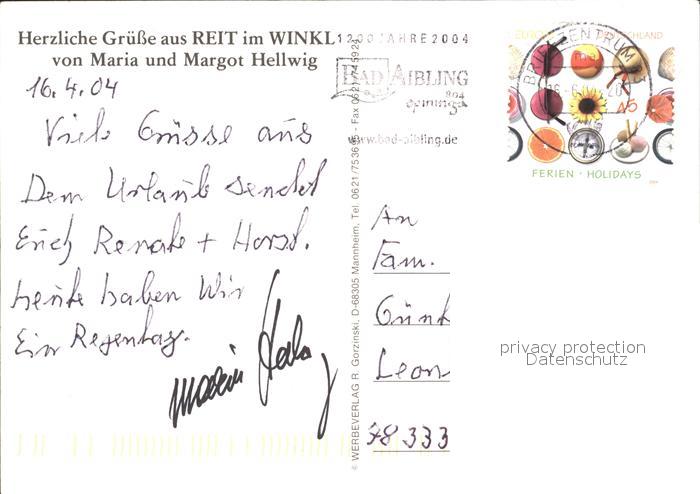 Herzliche Grüße aus REIT im WINKL
von Maria und Margot Hellwig
16.4.04
Viele Grüsse aus
Dem Urlaub sendet
Euch Renate + Horst.
heute haben Wir
Ein Regentag.
© WERBEVERLAG R. Gorzinski, D-68305 Mannheim, Tel. 0621/753695 - Fax 0621/745929
1200 JAHRE 2004
BAD AIBLING
www.bad-aibling.de
EUROPA DEUTSCHLAND
BRIEFZENTRUM
45
FERIEN · HOLIDAYS
An
Fam.
Günt
Leon
78333
privacy protection
Datenschutz